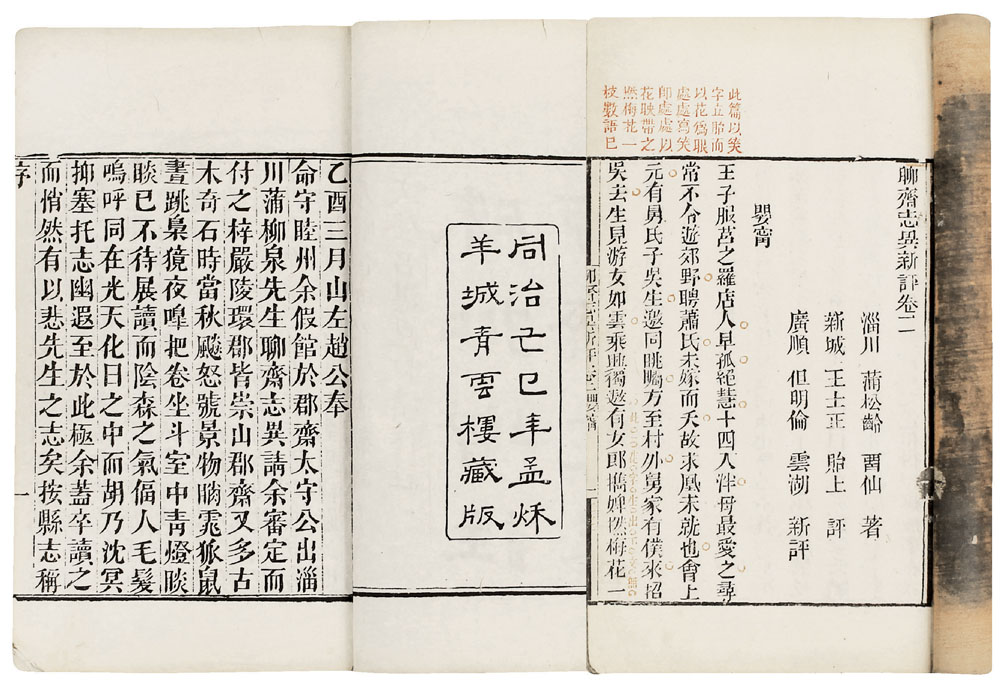 聊齋志異新評卷二
淄川 蒲松齡 畱仙 著
新城 王士正 貽上 評
廣順 但明倫 雲湖 新評
嬰甯
王子服莒之羅店人早孤絕慧十四入泮母最愛之尋
常不令遊郊野聘蕭氏未嫁而夭故求凰未就也會上
元有舅氏子吳生邀同眺矚方至村外舅家有僕來招
吳去生見游女如雲乘興獨遨有女郎攜婢撚梅花一
此篇以笑
字立胎而
以花爲眼
處處寫笑
卽處處以
花映帶之
撚梅花一
枝數語已
同治己巳年孟秌
羊城青雲樓藏版
乙酉三月山左趙公奉
命守睦州余假館於郡齋太守公出淄
川蒲柳泉先生聊齋志異請余審定而
付之梓嚴陵環郡皆崇山郡齋又多古
木奇石時當秋飈怒號景物睄窕狐鼠
晝跳梟獍夜嘷把卷坐斗室中青燈睒
睒已不待展讀而陰森之氣偪人毛髮
嗚呼同在光天化日之中而胡乃沈冥
抑塞托志幽遐至於此極余蓋卒讀之
而悄然有以悲先生之志矣按縣志稱
序
一